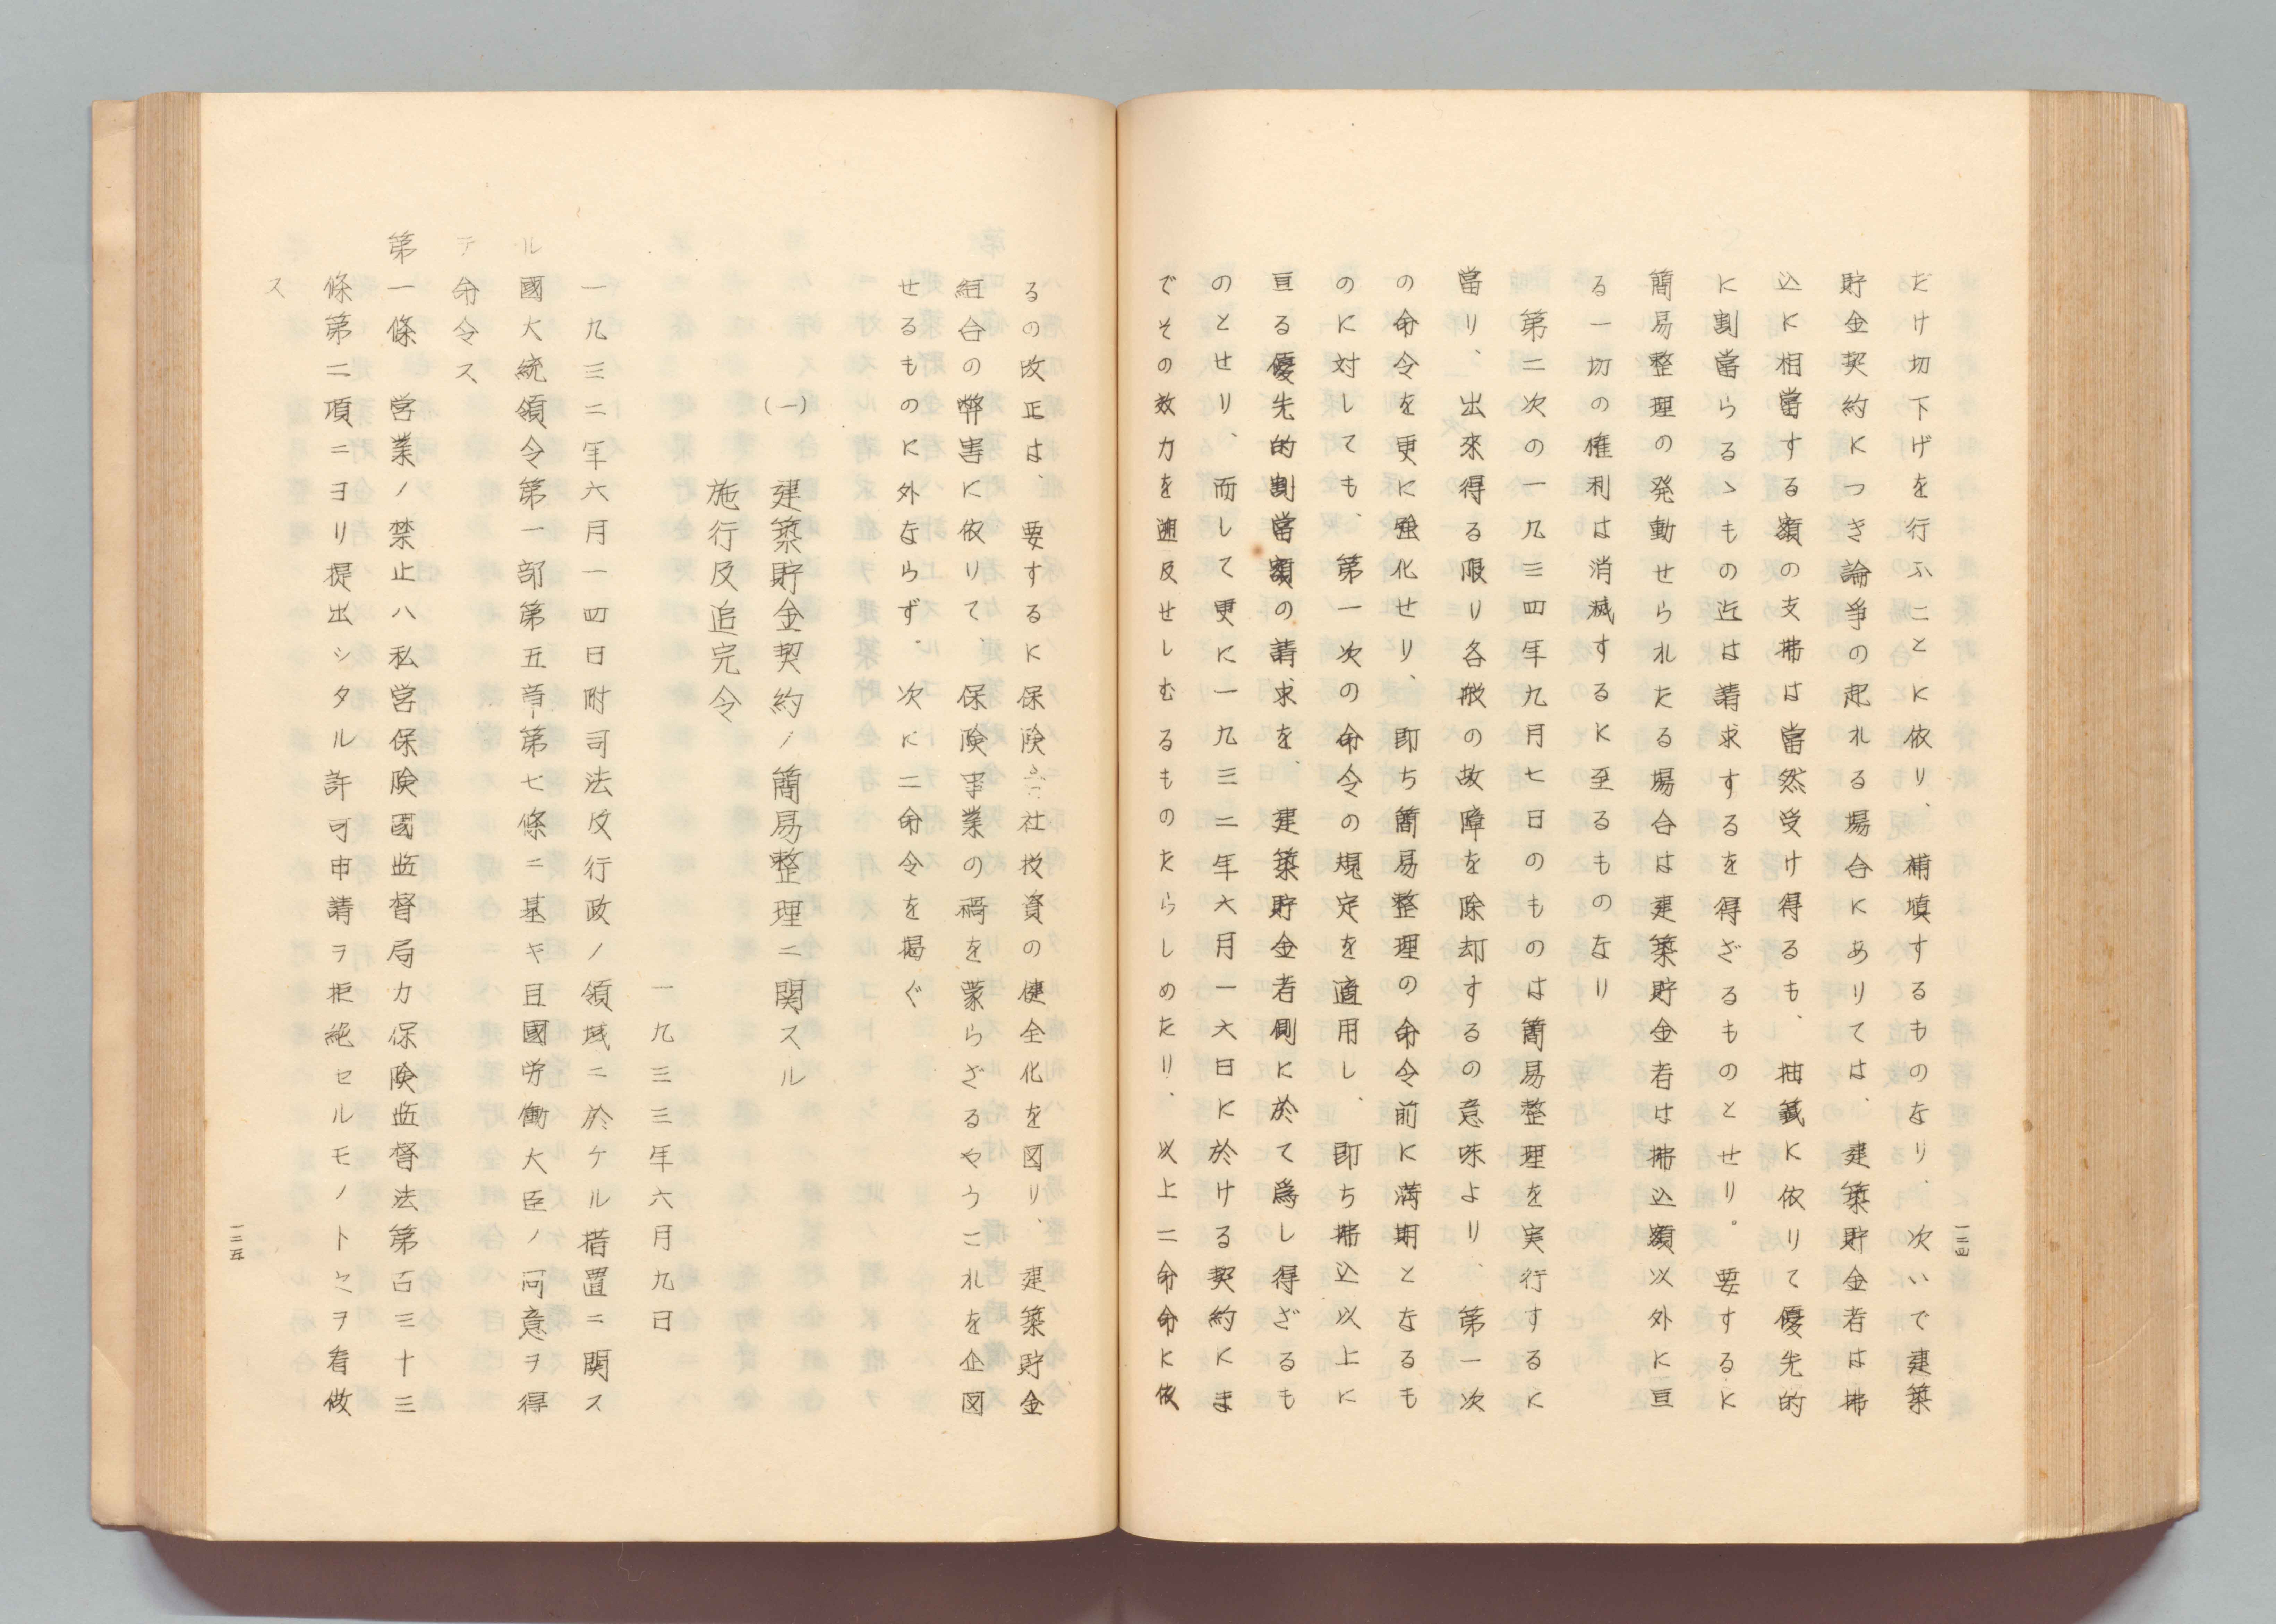 だけ切下げを行ふことに依り、補填するものなり、次いで建築
貯金契約につき論争の起れる場合にありては、建築貯金者は拂
込に相當する額の支拂は當然受け得るも、抽籤に依りて優先的
に割當らるゝもの迄は請求するを得ざるものとせり。要するに
簡易整理の発動せられたる場合は建築貯金者は拂込額以外に亘
る一切の権利は消滅するに至るものなり
第二次の一九三四年九月七日のものは簡易整理を実行するに
當り、出來得る限り各般の故障を除却するの意味より、第一次
の命令を更に強化せり、即ち簡易整理の命令前に満期となるも
のに対しても、第一次の命令の規定を適用し、即ち拂込以上に
亘る優先的割當額の請求を、建築貯金者側に於て爲し得ざるも
のとせり、而して更に一九三二年六月一六日に於ける契約にま
でその效力を遡及せしむるものたらしめたり、以上二命令に依
一二四
るの改正は、要するに保険会社投資の健全化を図り、建築貯金
組合の弊害に依りて、保険事業の禍を蒙らざるやうこれを企図
せるものに外ならず。次に二命令を掲ぐ
(一) 建築貯金契約ノ簡易整理ニ関スル
施行及追完令
一九三三年六月九日
一九三二年六月一四日附司法及行政ノ領域ニ於ケル措置ニ関ス
ル國大統領令第一部第五章第七條ニ基キ且國労働大臣ノ同意ヲ得
テ命令ス
第一條 営業ノ禁止ハ私営保険國監督局カ保険監督法第百三十三
條第二項ニヨリ提出シタル許可申請ヲ拒絶セルモノトヒヲ看做
ス
一二五